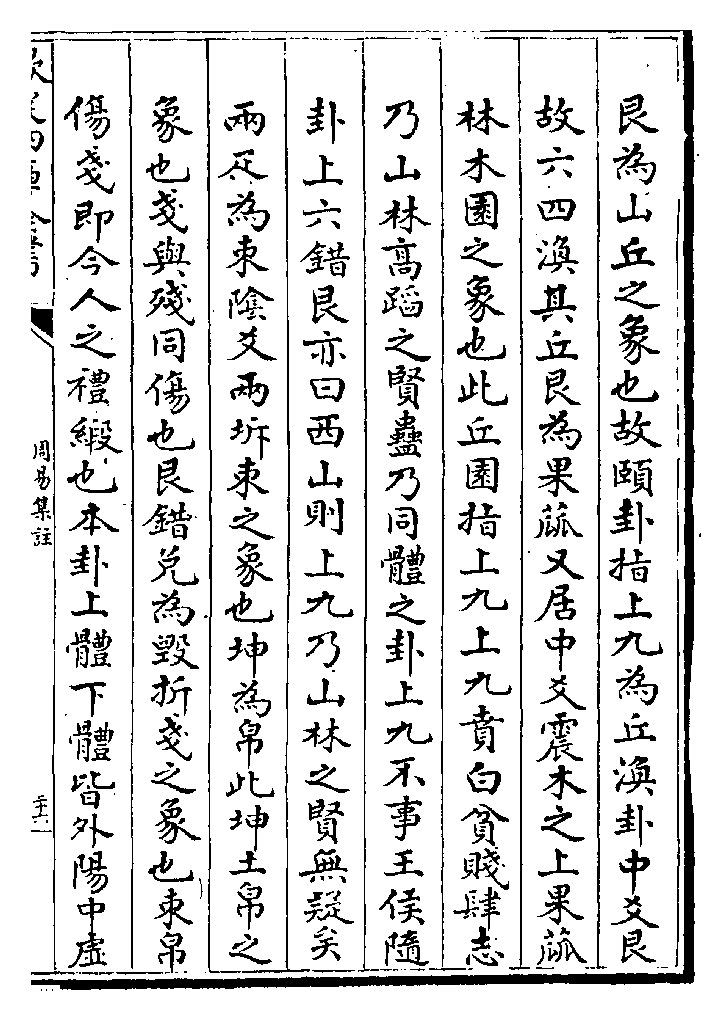 艮為山丘之象也故頤卦指上九為丘渙卦中爻艮
故六四渙其丘艮為果蓏又居中爻震木之上果蓏
林木園之象也此丘園指上九上九賁白貧賤肆志
乃山林高蹈之賢蠱乃同體之卦上九不事王侯隨
卦上六錯艮亦曰西山則上九乃山林之賢無疑矣
兩疋為束陰爻兩坼束之象也坤為帛此坤土帛之
象也戔與殘同傷也艮錯兌為毀折戔之象也束帛
傷戔即今人之禮緞也本卦上體下體皆外陽中虛
欽定四庫全書
周易集註